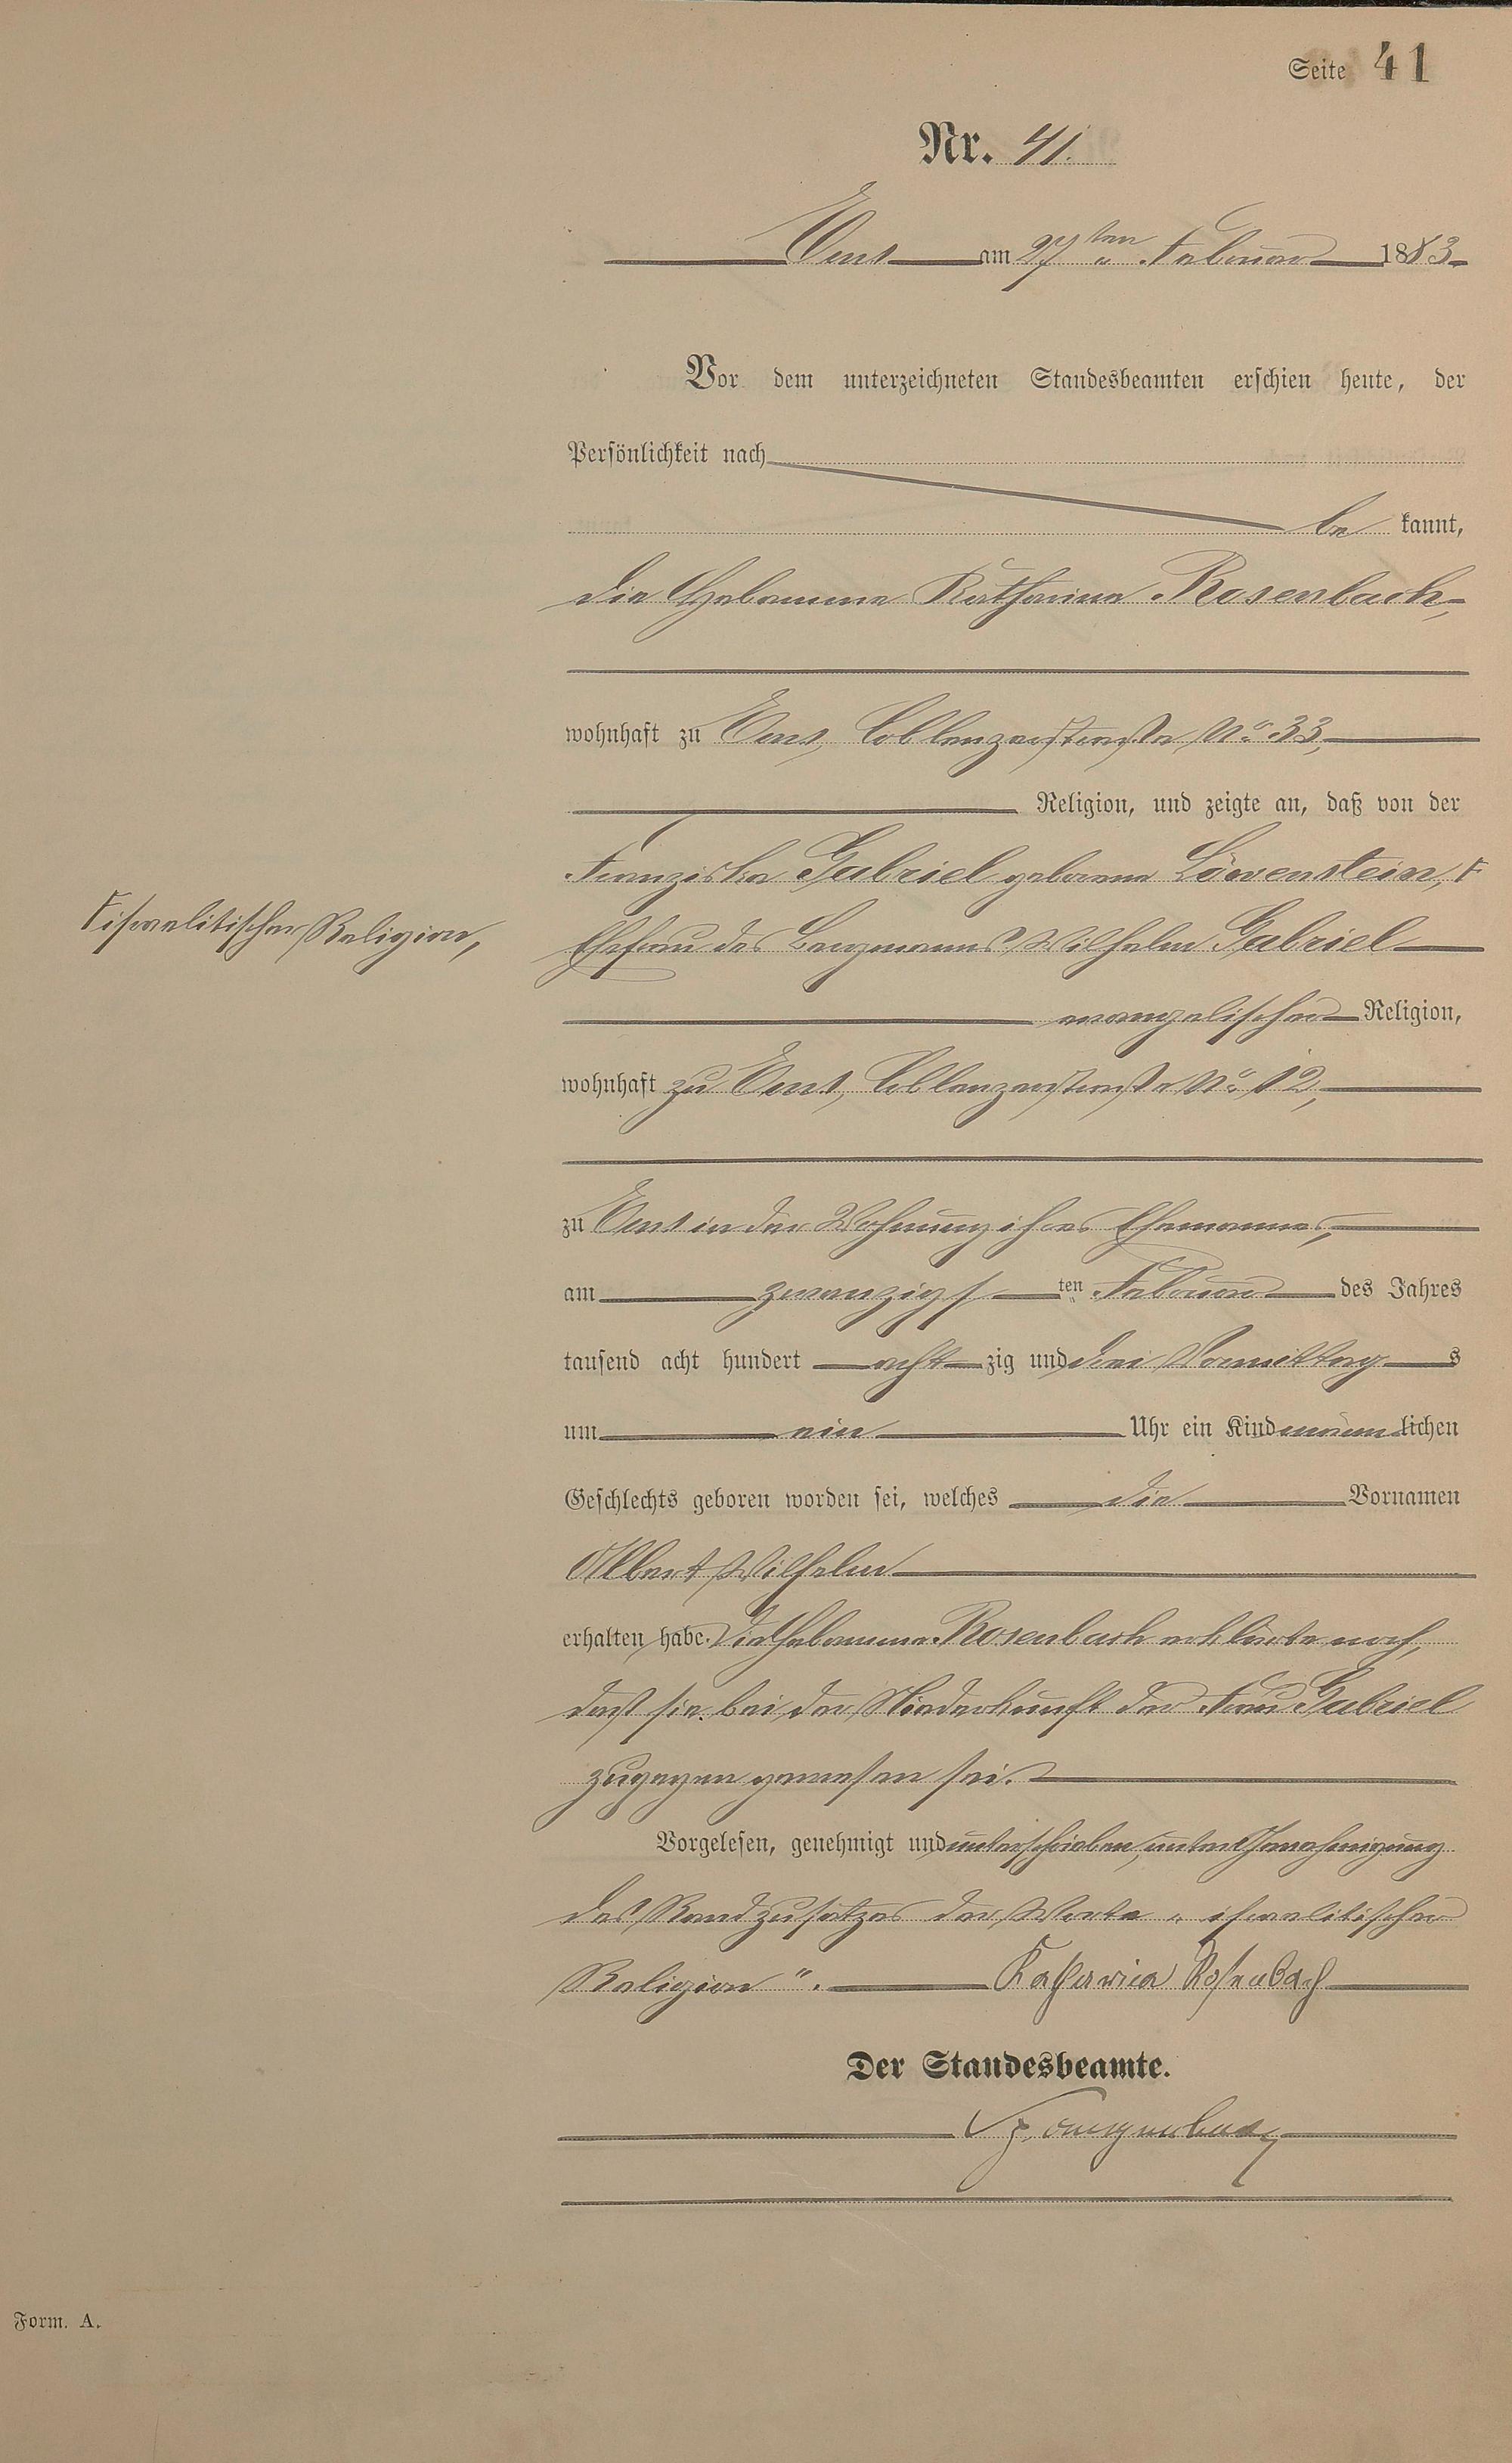 Seite 41
Nr. 41.
Ems am 27ten Februar 1883
Vor dem unterzeichneten Standesbeamten erschien heute, der
Persönlichkeit nach
be kannt,
die Hebamme Katharina Rosenbach,
wohnhaft zu Ems, Coblenzerstraße No. 33,
Religion, und zeigte an, daß von der
Franziska Gabriel geborene Löwenstein, F
F israelitischer Religion,
Ehefrau des Bergmanns Wilhelm Gabriel
evangelischer Religion,
wohnhaft zu Ems, Coblenzerstraße No. 12,
zu Ems in der Wohnung ihres Ehemannes,
am zwanzigsten Februar des Jahres
tausend acht hundert acht zig und drei Vormittags
um ein Uhr ein Kind männlichen
Geschlechts geboren worden sei, welches die Vornamen
Albert Wilhelm
erhalten habe. Die Hebamme Rosenbach erklärte noch,
daß sie bei der Niederkunft der Frau Gabriel
zugegen gewesen sei.
Vorgelesen, genehmigt und unterschrieben, unter Genehmigung
des Randzusatzes der Worte "israelitischer
Religion". Katharina Rosenbach
Der Standesbeamte.
Form. A.